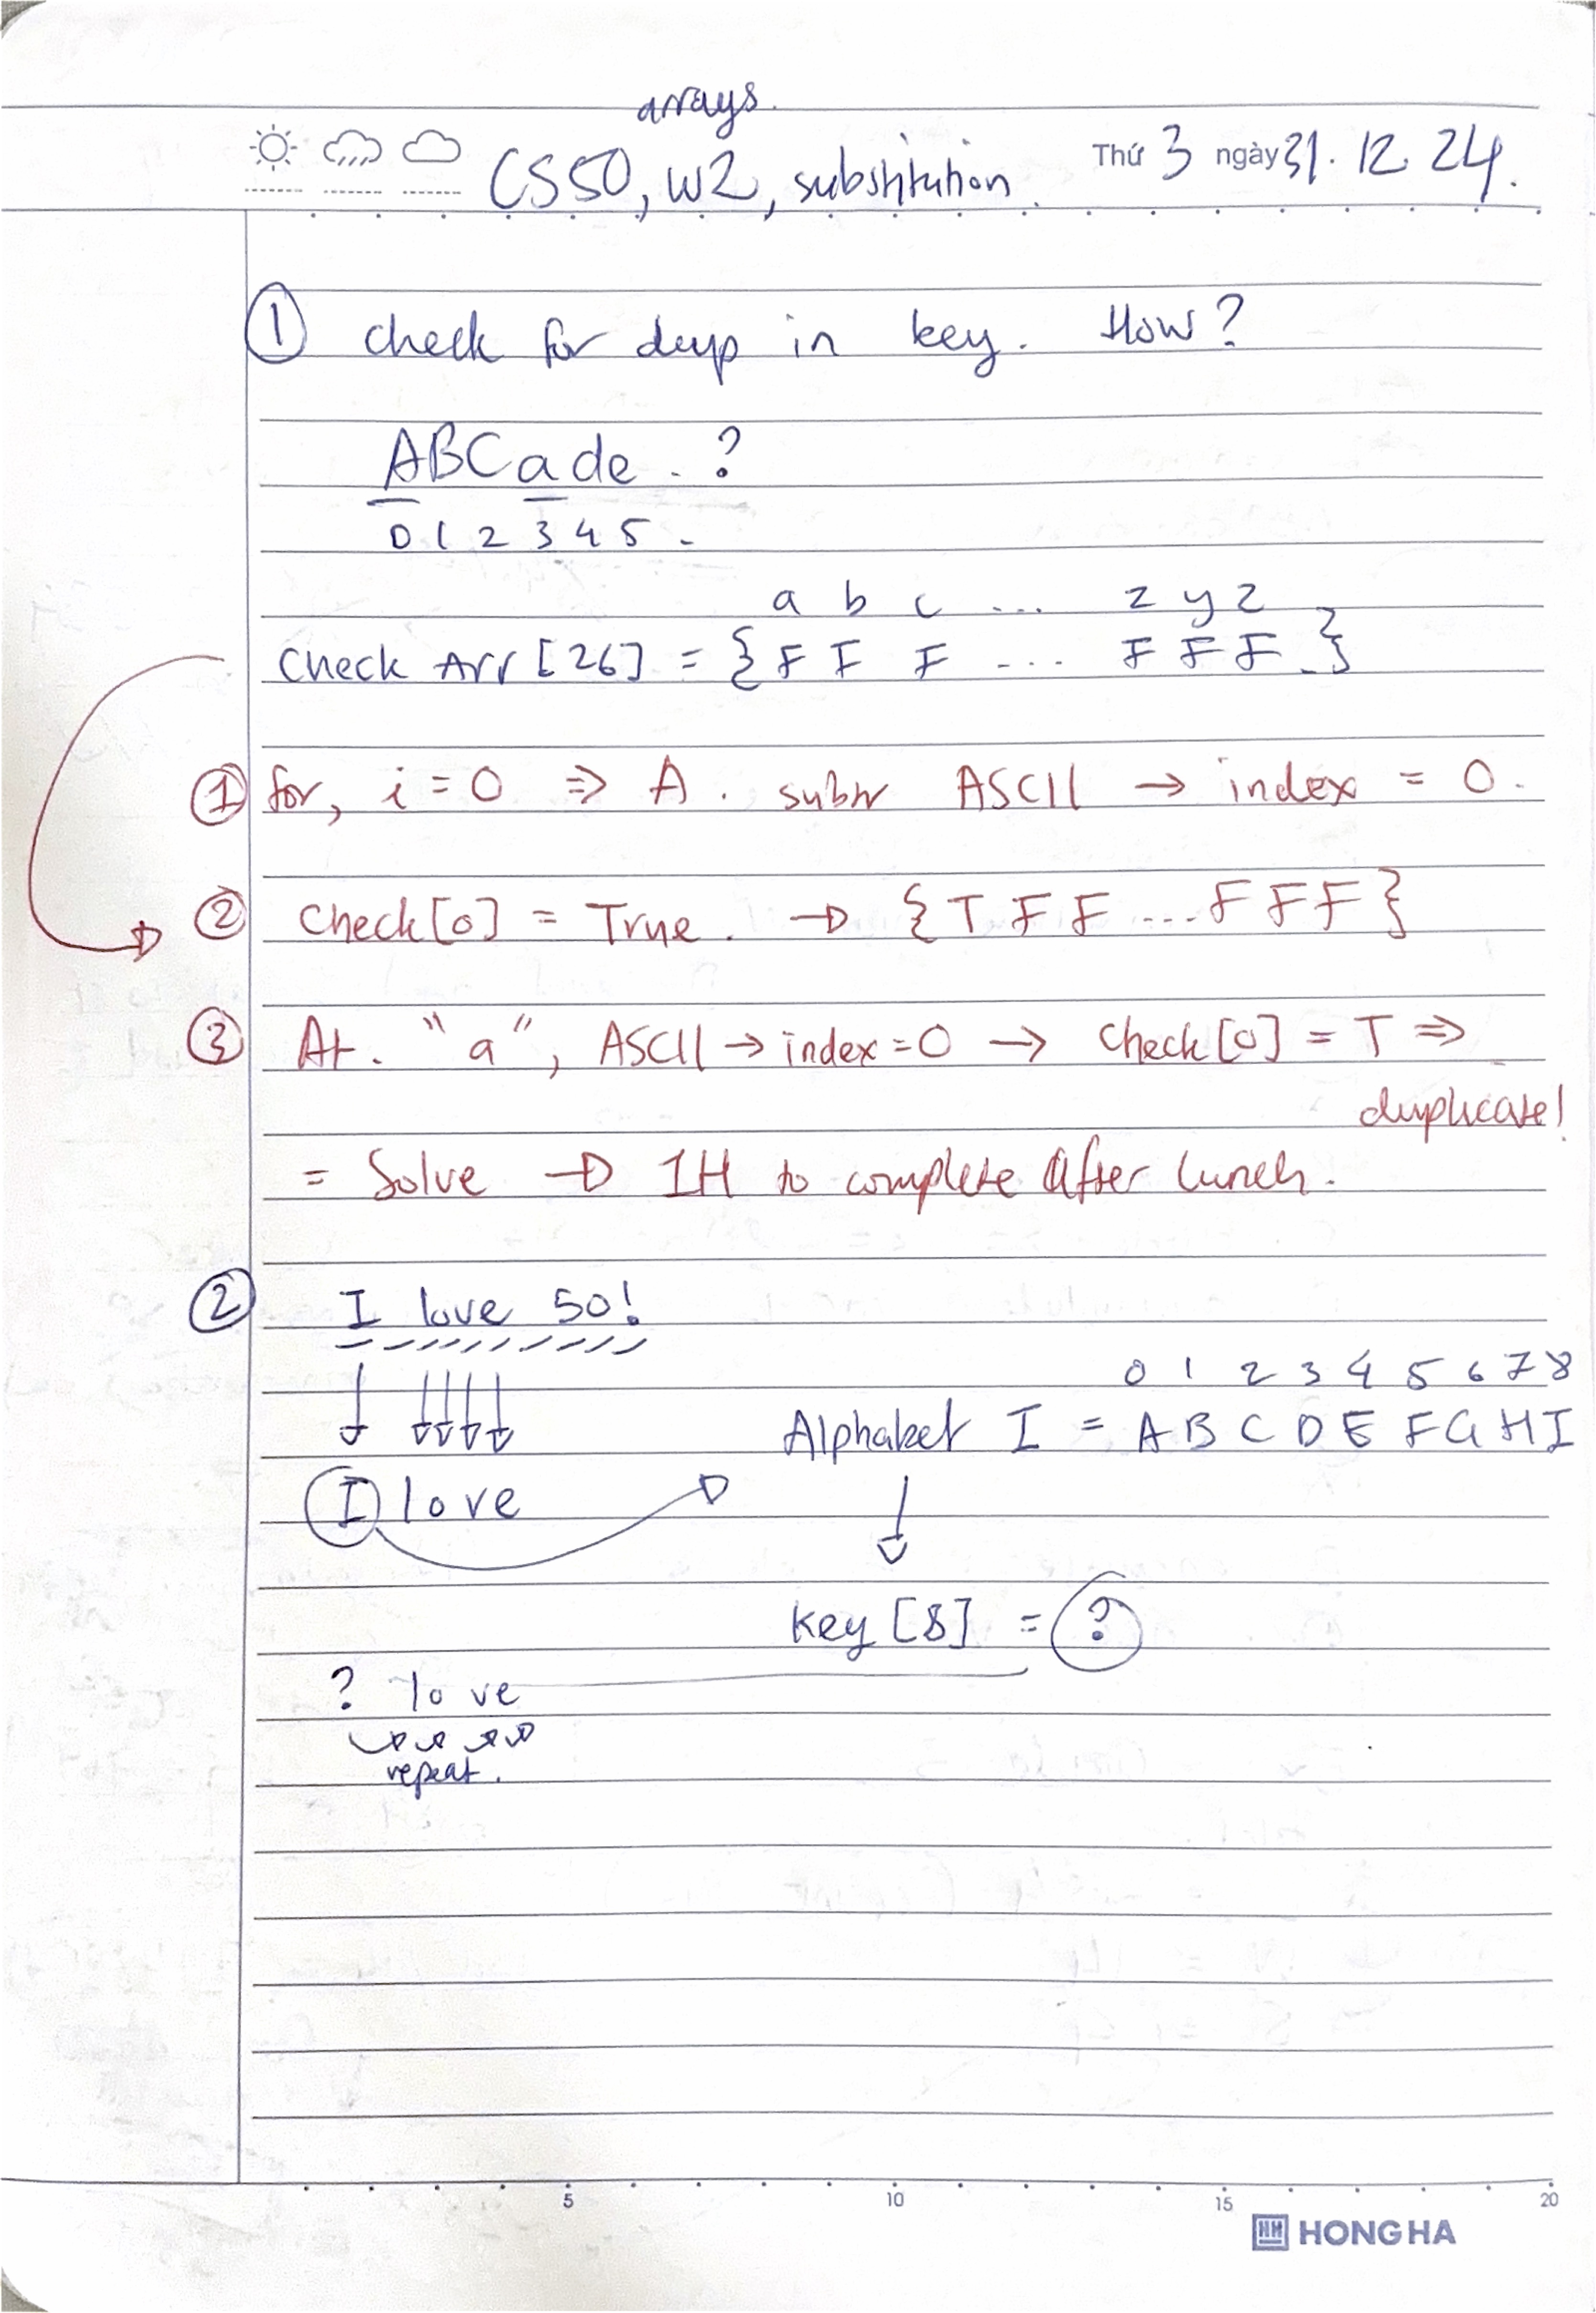 arrays.
CS50, W2, substitution. Thứ 3 ngày 31. 12 24.
① check for dup in key. How?
ABCade . ?
0 1 2 3 4 5 -
a b c ... z y z
Check Arr [26] = { F F F ... F F F }
① for, i = 0 ⇒ A. subtr ASCII → index = 0.
② Check[0] = True. → { T F F ... F F F }
③ At. "a", ASCII → index = 0 → Check[0] = T ⇒
duplicate!
= Solve → 1H to complete After lunch.
② I love 50!
0 1 2 3 4 5 6 7 8
Alphabet I = A B C D E F G H I
I love
key [8] = ?
? love
repeat.
5 10 15 20
HH HONG HA